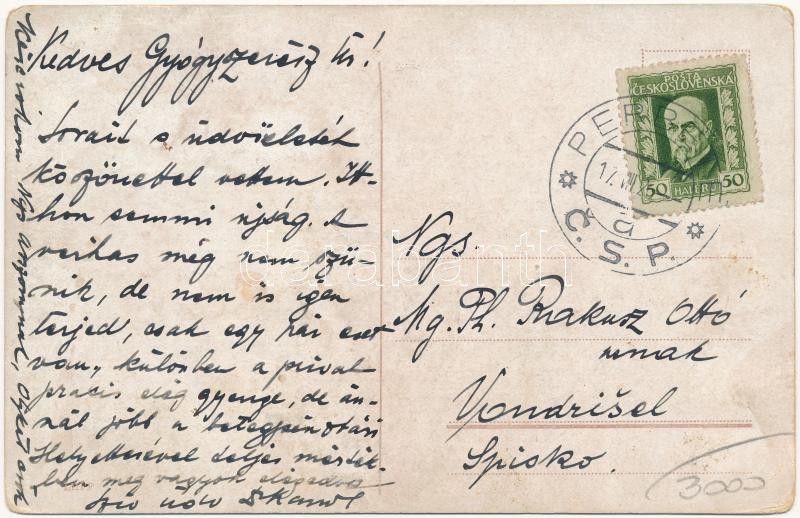 Kedves Gyógyszerész Úr!
Sorait s üdvözletét
köszönettel vettem. Itt-
hon semmi újság. A
verhas még nem szü-
nik, de nem is igen
terjed, csak egy pár eset
van, különben a privat
praxis elég gyenge, de án-
nál jobb a betegpénztári
Helyettesével teljes mérték-
ben meg vagyok elégedve
üdv
POSTA
ČESKOSLOVENSKÁ
50 HALÉŘŮ 50
Č.S.P.
a
Ngs.
Mg. Ph. Rakusz Ottó
urnak
Vondrišel
Spisko.
3000
darabanth